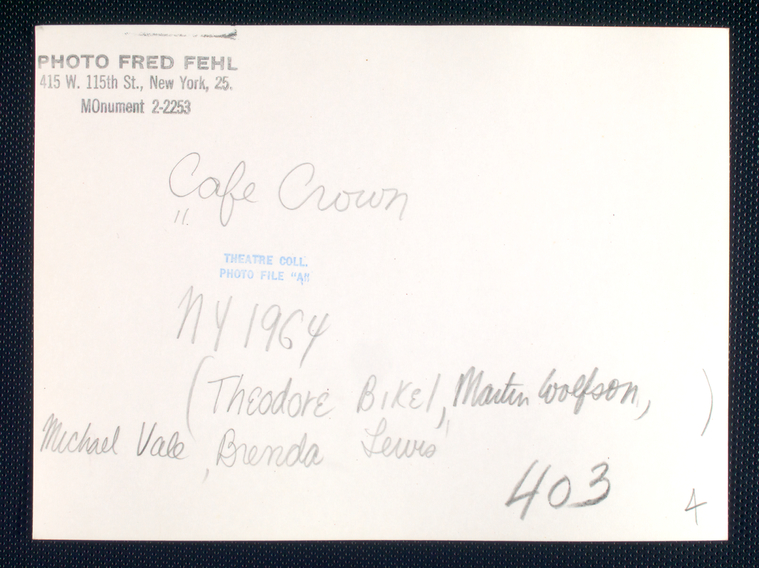 PHOTO FRED FEHL
415 W. 115th St., New York, 25.
MOnument 2-2253
Cafe Crown
"
THEATRE COLL.
PHOTO FILE "A"
NY 1964
(Theodore Bikel, Martin Wolfson, )
Michael Vale, Brenda Lewis
403
4